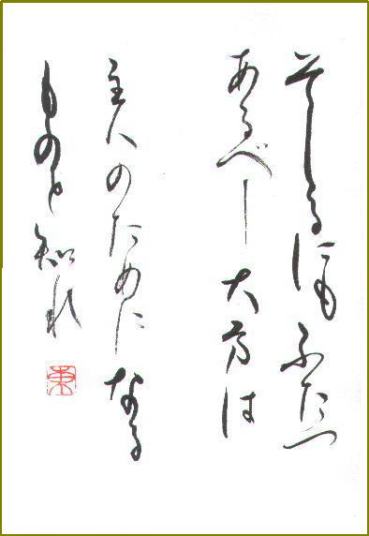 そしるにもふたつ
あるべし大方は
主人のためになる
ものと知れ